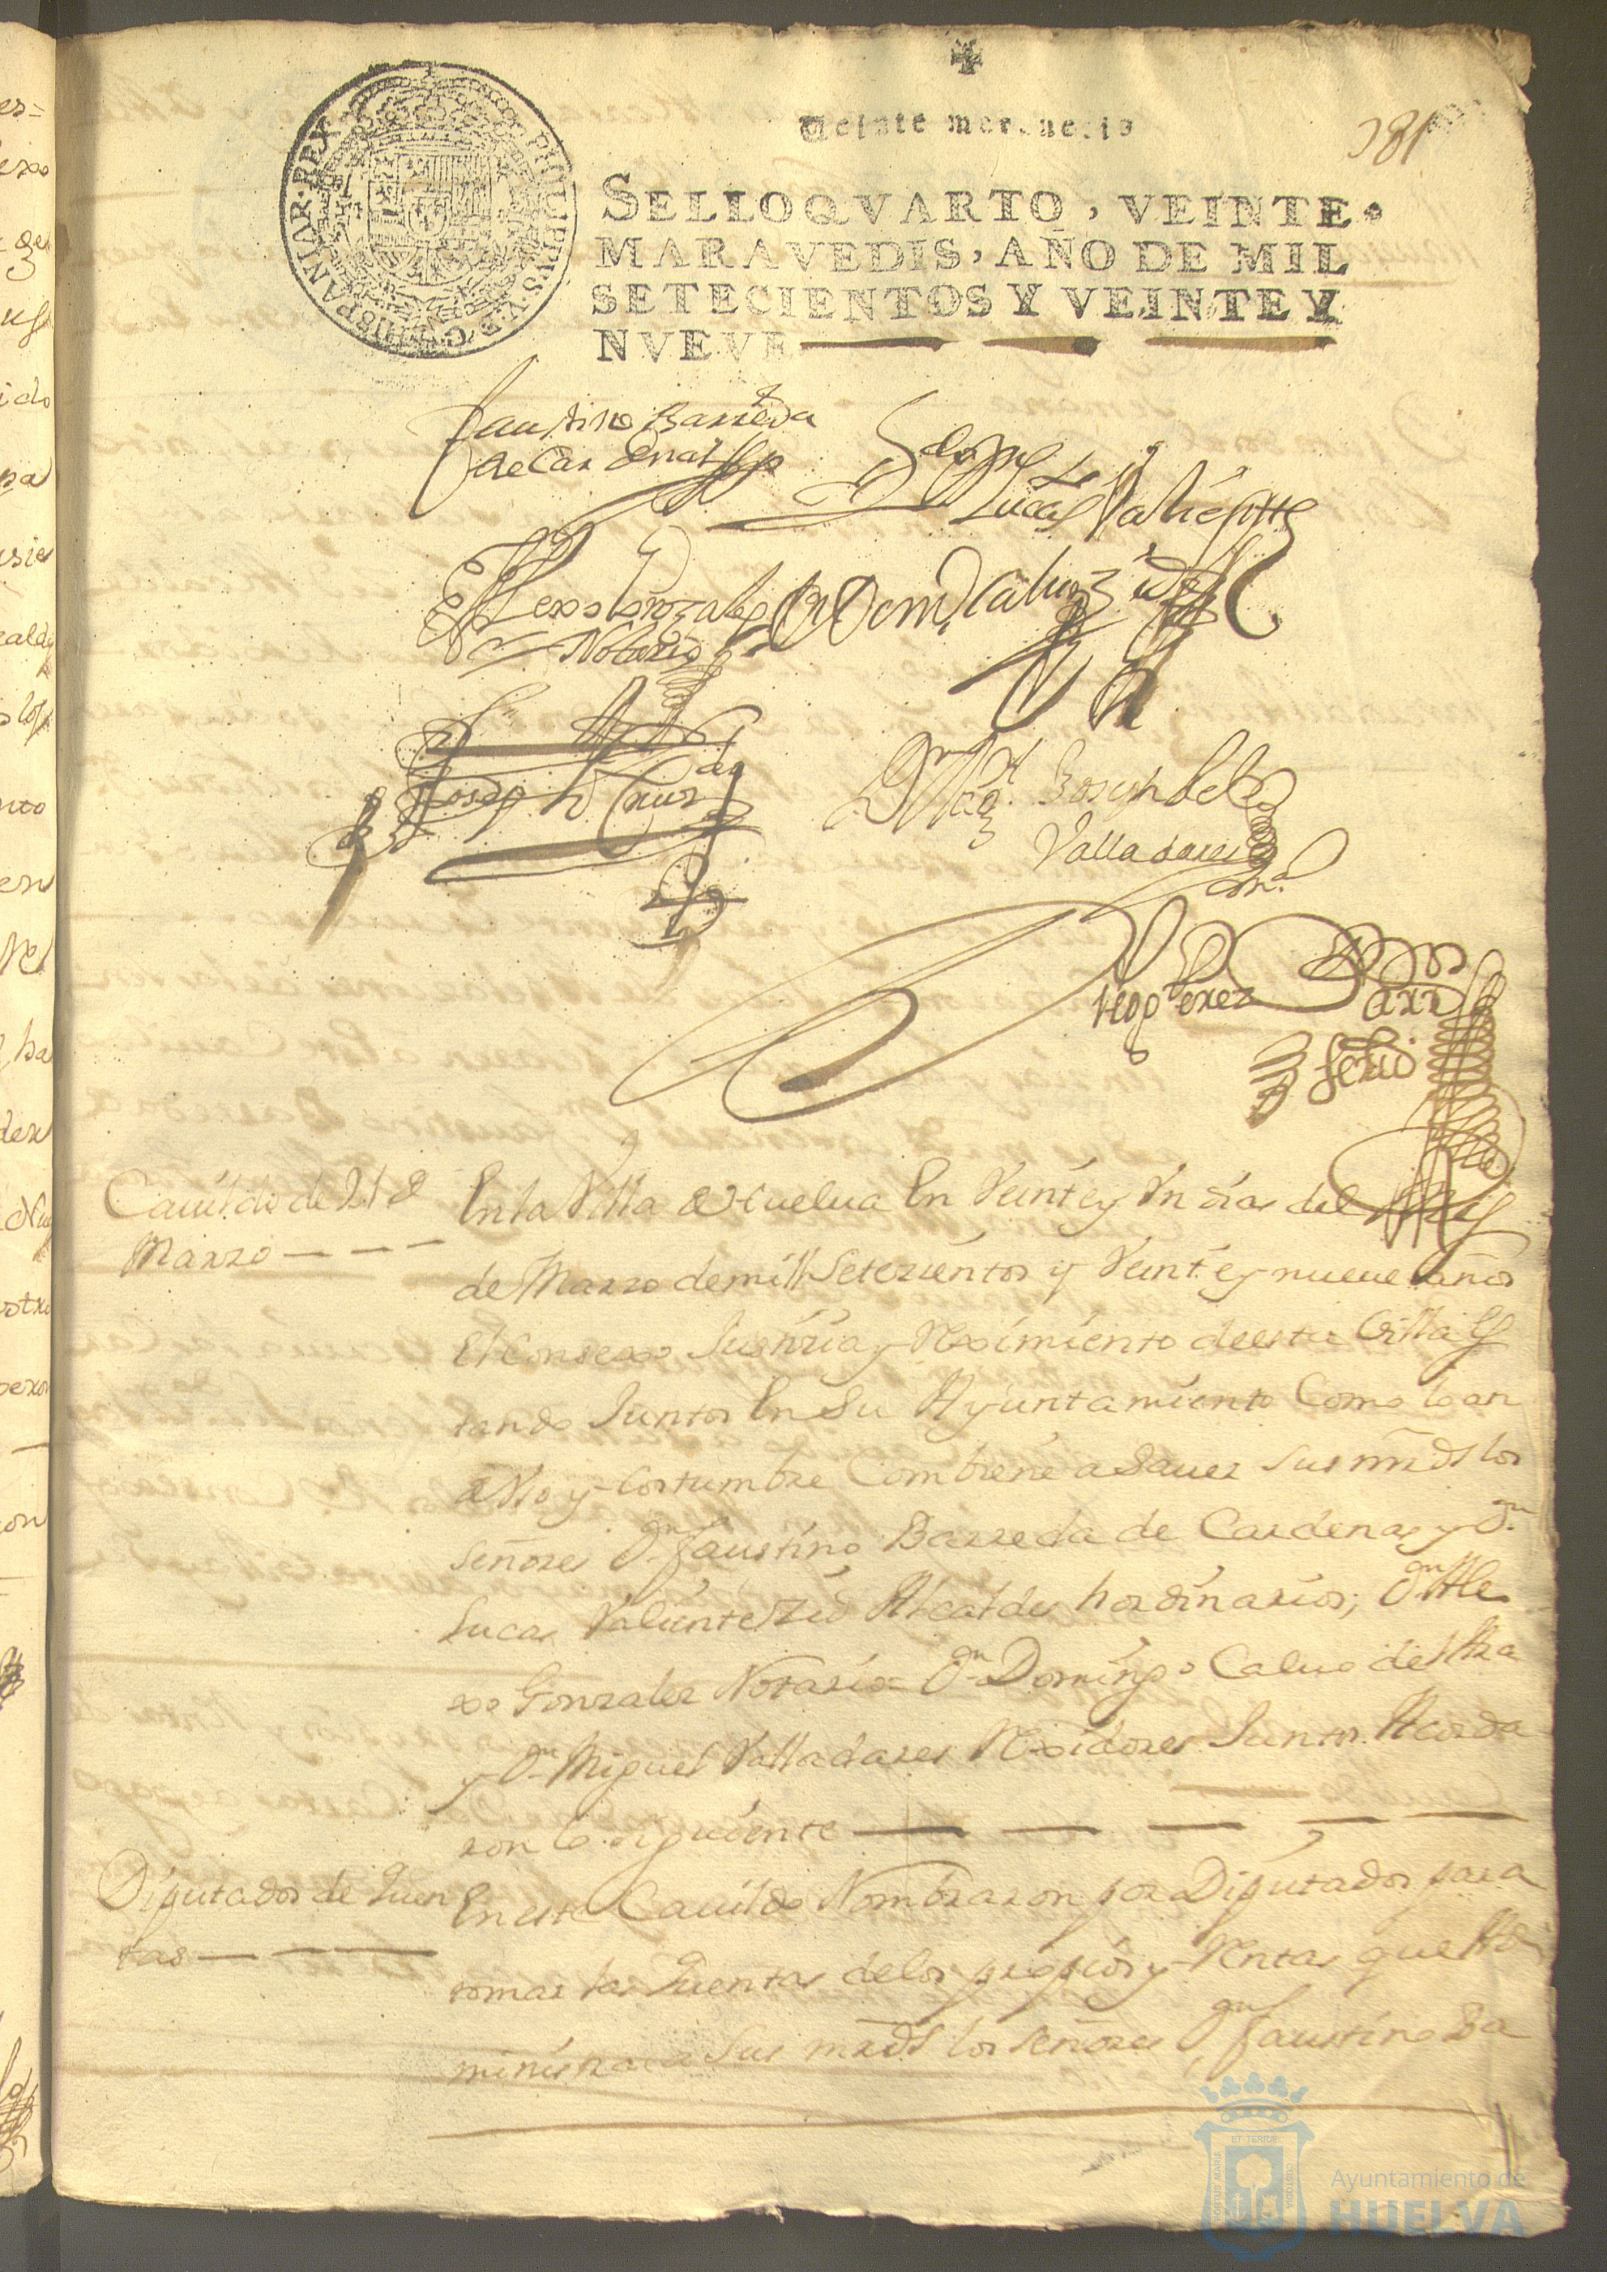 Veinte maravedis
181
PHILIPPVS V D G HISPANIAR REX
SELLO QVARTO, VEINTE
MARAVEDIS, AÑO DE MIL
SETECIENTOS Y VEINTE Y
NVEVE
Faustino Barreda
de Cardenas
Lucas Valiente
Alexo Gonzales
Notario
Dom Calvo
Joseph de Cruz
Joseph de
Valladares
Diego Perez
Cauildo de 21 de
Marzo
En la Villa de Huelua En Veinte y Vn dias del Mes
de Marzo de mill Setezientos y Veinte y nueue años
El Consexo Justizia y Reximiento de esta Villa Es
tando Juntos En Su Ayuntamiento Como lo an
de Vso y Costumbre Combiene a Sauer Sus mrds los
Señores Dn faustino Barreda de Cardenas y Dn
Lucas Valiente Alcaldes hordinarios; Dn Ale
xo Gonzales Notario Dn Domingo Caluo
y Dn Miguel Valladares Rexidores Juntos Acorda
ron lo siguiente
Diputados de Quen
tas
En este Cauildo Nombraron por Diputados para
tomar las Quentas de los propios y Rentas que Ad
ministra a Sus mrds los Señores Dn faustino Ba
Ayuntamiento de
HUELVA